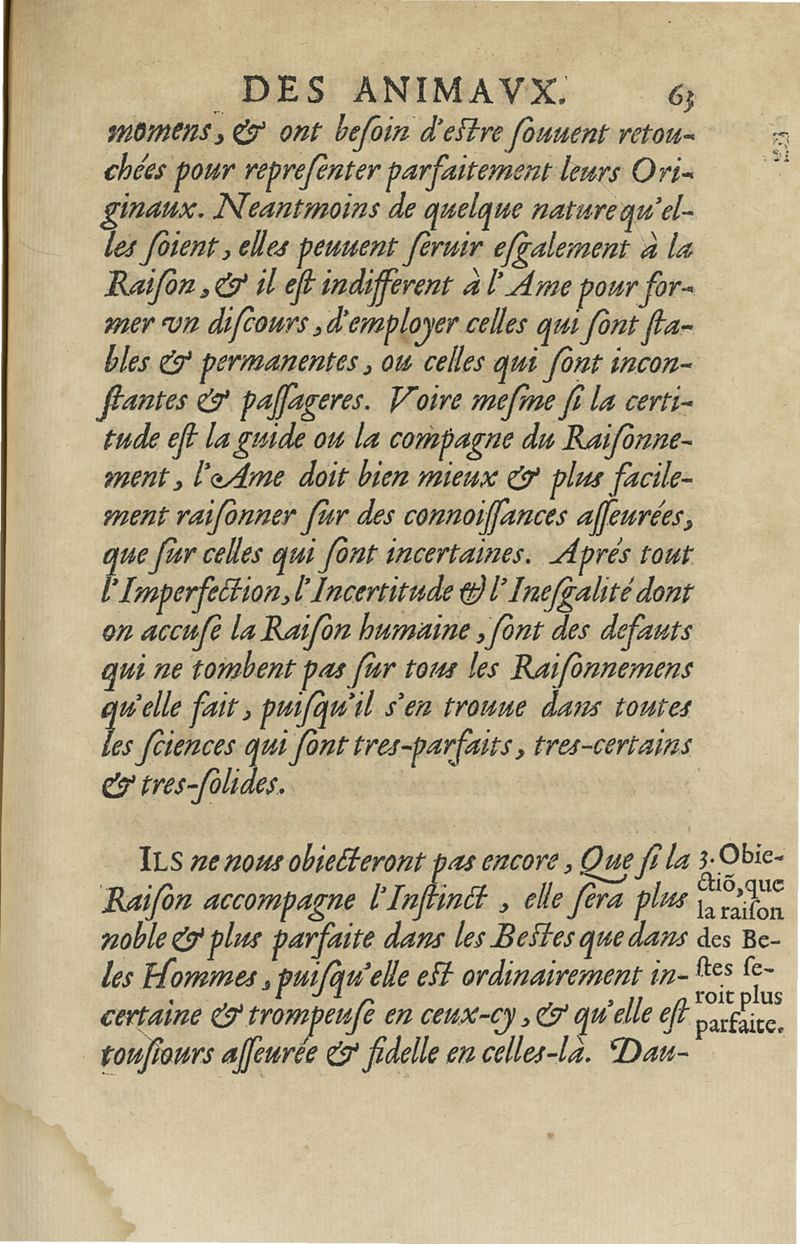 DES ANIMAVX. 63
momens, & ont beſoin d'eſtre ſouuent retou-
chées pour repreſenter parfaitement leurs Ori-
ginaux. Neantmoins de quelque nature qu'el-
les ſoient, elles peuuent ſeruir eſgalement à la
Raiſon, & il eſt indifferent à l'Ame pour for-
mer vn diſcours, d'employer celles qui ſont ſta-
bles & permanentes, ou celles qui ſont incon-
ſtantes & paſſageres. Voire meſme ſi la certi-
tude eſt la guide ou la compagne du Raiſonne-
ment, l'Ame doit bien mieux & plus facile-
ment raiſonner ſur des connoiſſances aſſeurées,
que ſur celles qui ſont incertaines. Aprés tout
l'Imperfection, l'Incertitude & l'Ineſgalité dont
on accuſe la Raiſon humaine, ſont des defauts
qui ne tombent pas ſur tous les Raiſonnemens
qu'elle fait, puiſqu'il s'en trouue dans toutes
les ſciences qui ſont tres-parfaits, tres-certains
& tres-ſolides.
ILS ne nous obiecteront pas encore, Que ſi la
Raiſon accompagne l'Inſtinct, elle ſera plus
noble & plus parfaite dans les Beſtes que dans
les Hommes, puiſqu'elle eſt ordinairement in-
certaine & trompeuſe en ceux-cy, & qu'elle eſt
touſiours aſſeurée & fidelle en celles-là. Dau-
3. Obie-
ctiõ, que
la raiſon
des Be-
ſtes ſe-
roit plus
parfaite.